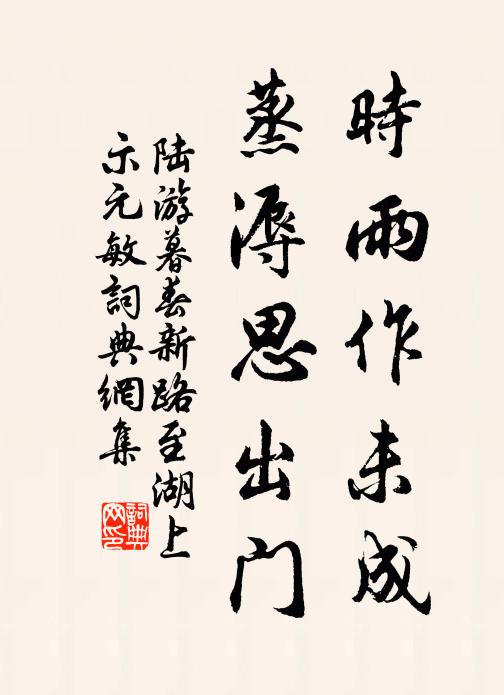 時雨作未成
蒸溽思出门
陆游暮春新路至湖上
示元敏詞典網集
詞典网印